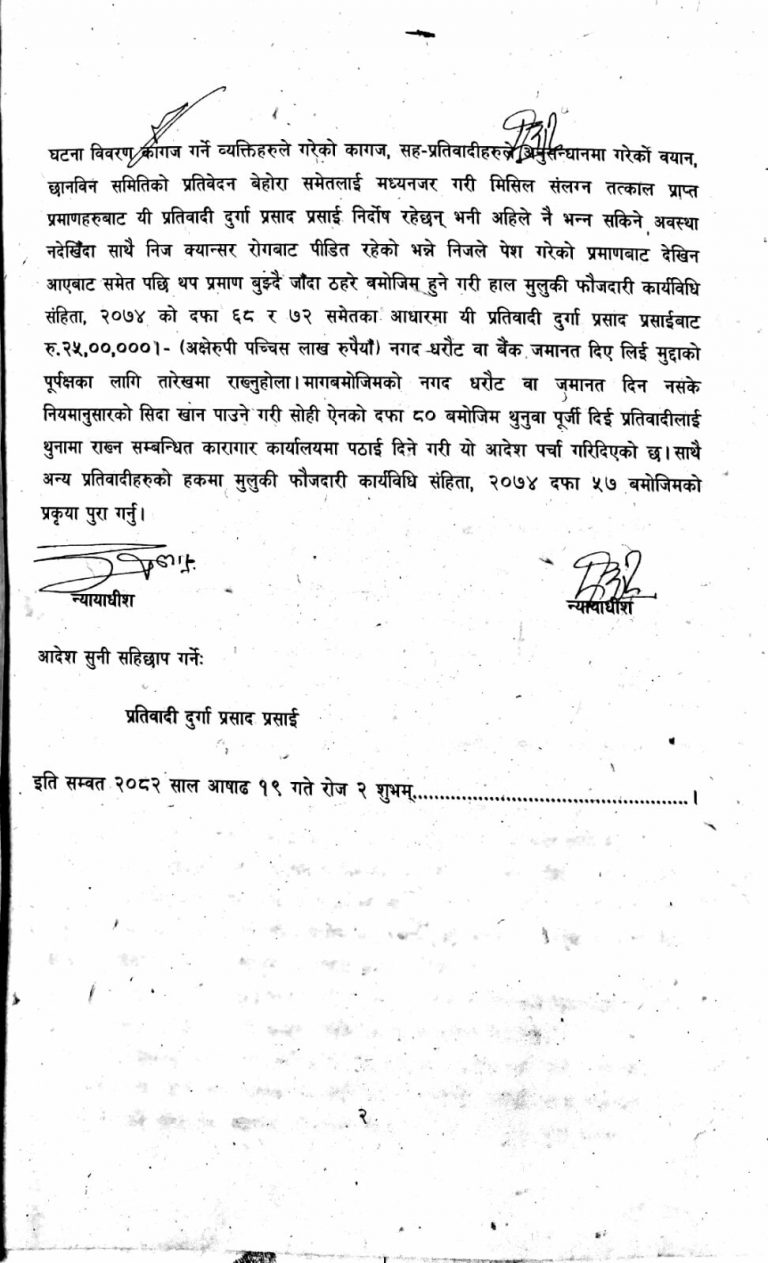 घटना विवरण कागज गर्ने व्यक्तिहरुले गरेको कागज, सह-प्रतिवादीहरुले अनुसन्धानमा गरेको वयान,
छानविन समितिको प्रतिवेदन बेहोरा समेतलाई मध्यनजर गरी मिसिल संलग्न तत्काल प्राप्त
प्रमाणहरुबाट यी प्रतिवादी दुर्गा प्रसाद प्रसाई निर्दोष रहेछन् भनी अहिले नै भन्न सकिने अवस्था
नदेखिँदा साथै निज क्यान्सर रोगबाट पीडित रहेको भन्ने निजले पेश गरेको प्रमाणबाट देखिन
आएबाट समेत पछि थप प्रमाण बुझ्दै जाँदा ठहरे बमोजिम हुने गरी हाल मुलुकी फौजदारी कार्यविधि
संहिता, २०७४ को दफा ६८ र ७२ समेतका आधारमा यी प्रतिवादी दुर्गा प्रसाद प्रसाईबाट
रु.२५,००,०००।- (अक्षेरुपी पच्चिस लाख रुपैयाँ) नगद धरौट वा बैंक जमानत दिए लिई मुद्दाको
पूर्पक्षका लागि तारेखमा राख्नुहोला। मागबमोजिमको नगद धरौट वा जमानत दिन नसके
नियमानुसारको सिदा खान पाउने गरी सोही ऐनको दफा ८० बमोजिम थुनुवा पूर्जी दिई प्रतिवादीलाई
थुनामा राख्न सम्बन्धित कारागार कार्यालयमा पठाई दिने गरी यो आदेश पर्चा गरिदिएको छ। साथै
अन्य प्रतिवादीहरुको हकमा मुलुकी फौजदारी कार्यविधि संहिता, २०७४ दफा ५७ बमोजिमको
प्रकृया पुरा गर्नु।
न्यायाधीश न्यायाधीश
आदेश सुनी सहिछाप गर्नेः
प्रतिवादी दुर्गा प्रसाद प्रसाई
इति सम्वत २०८२ साल आषाढ १९ गते रोज २ शुभम्...................................................।
२